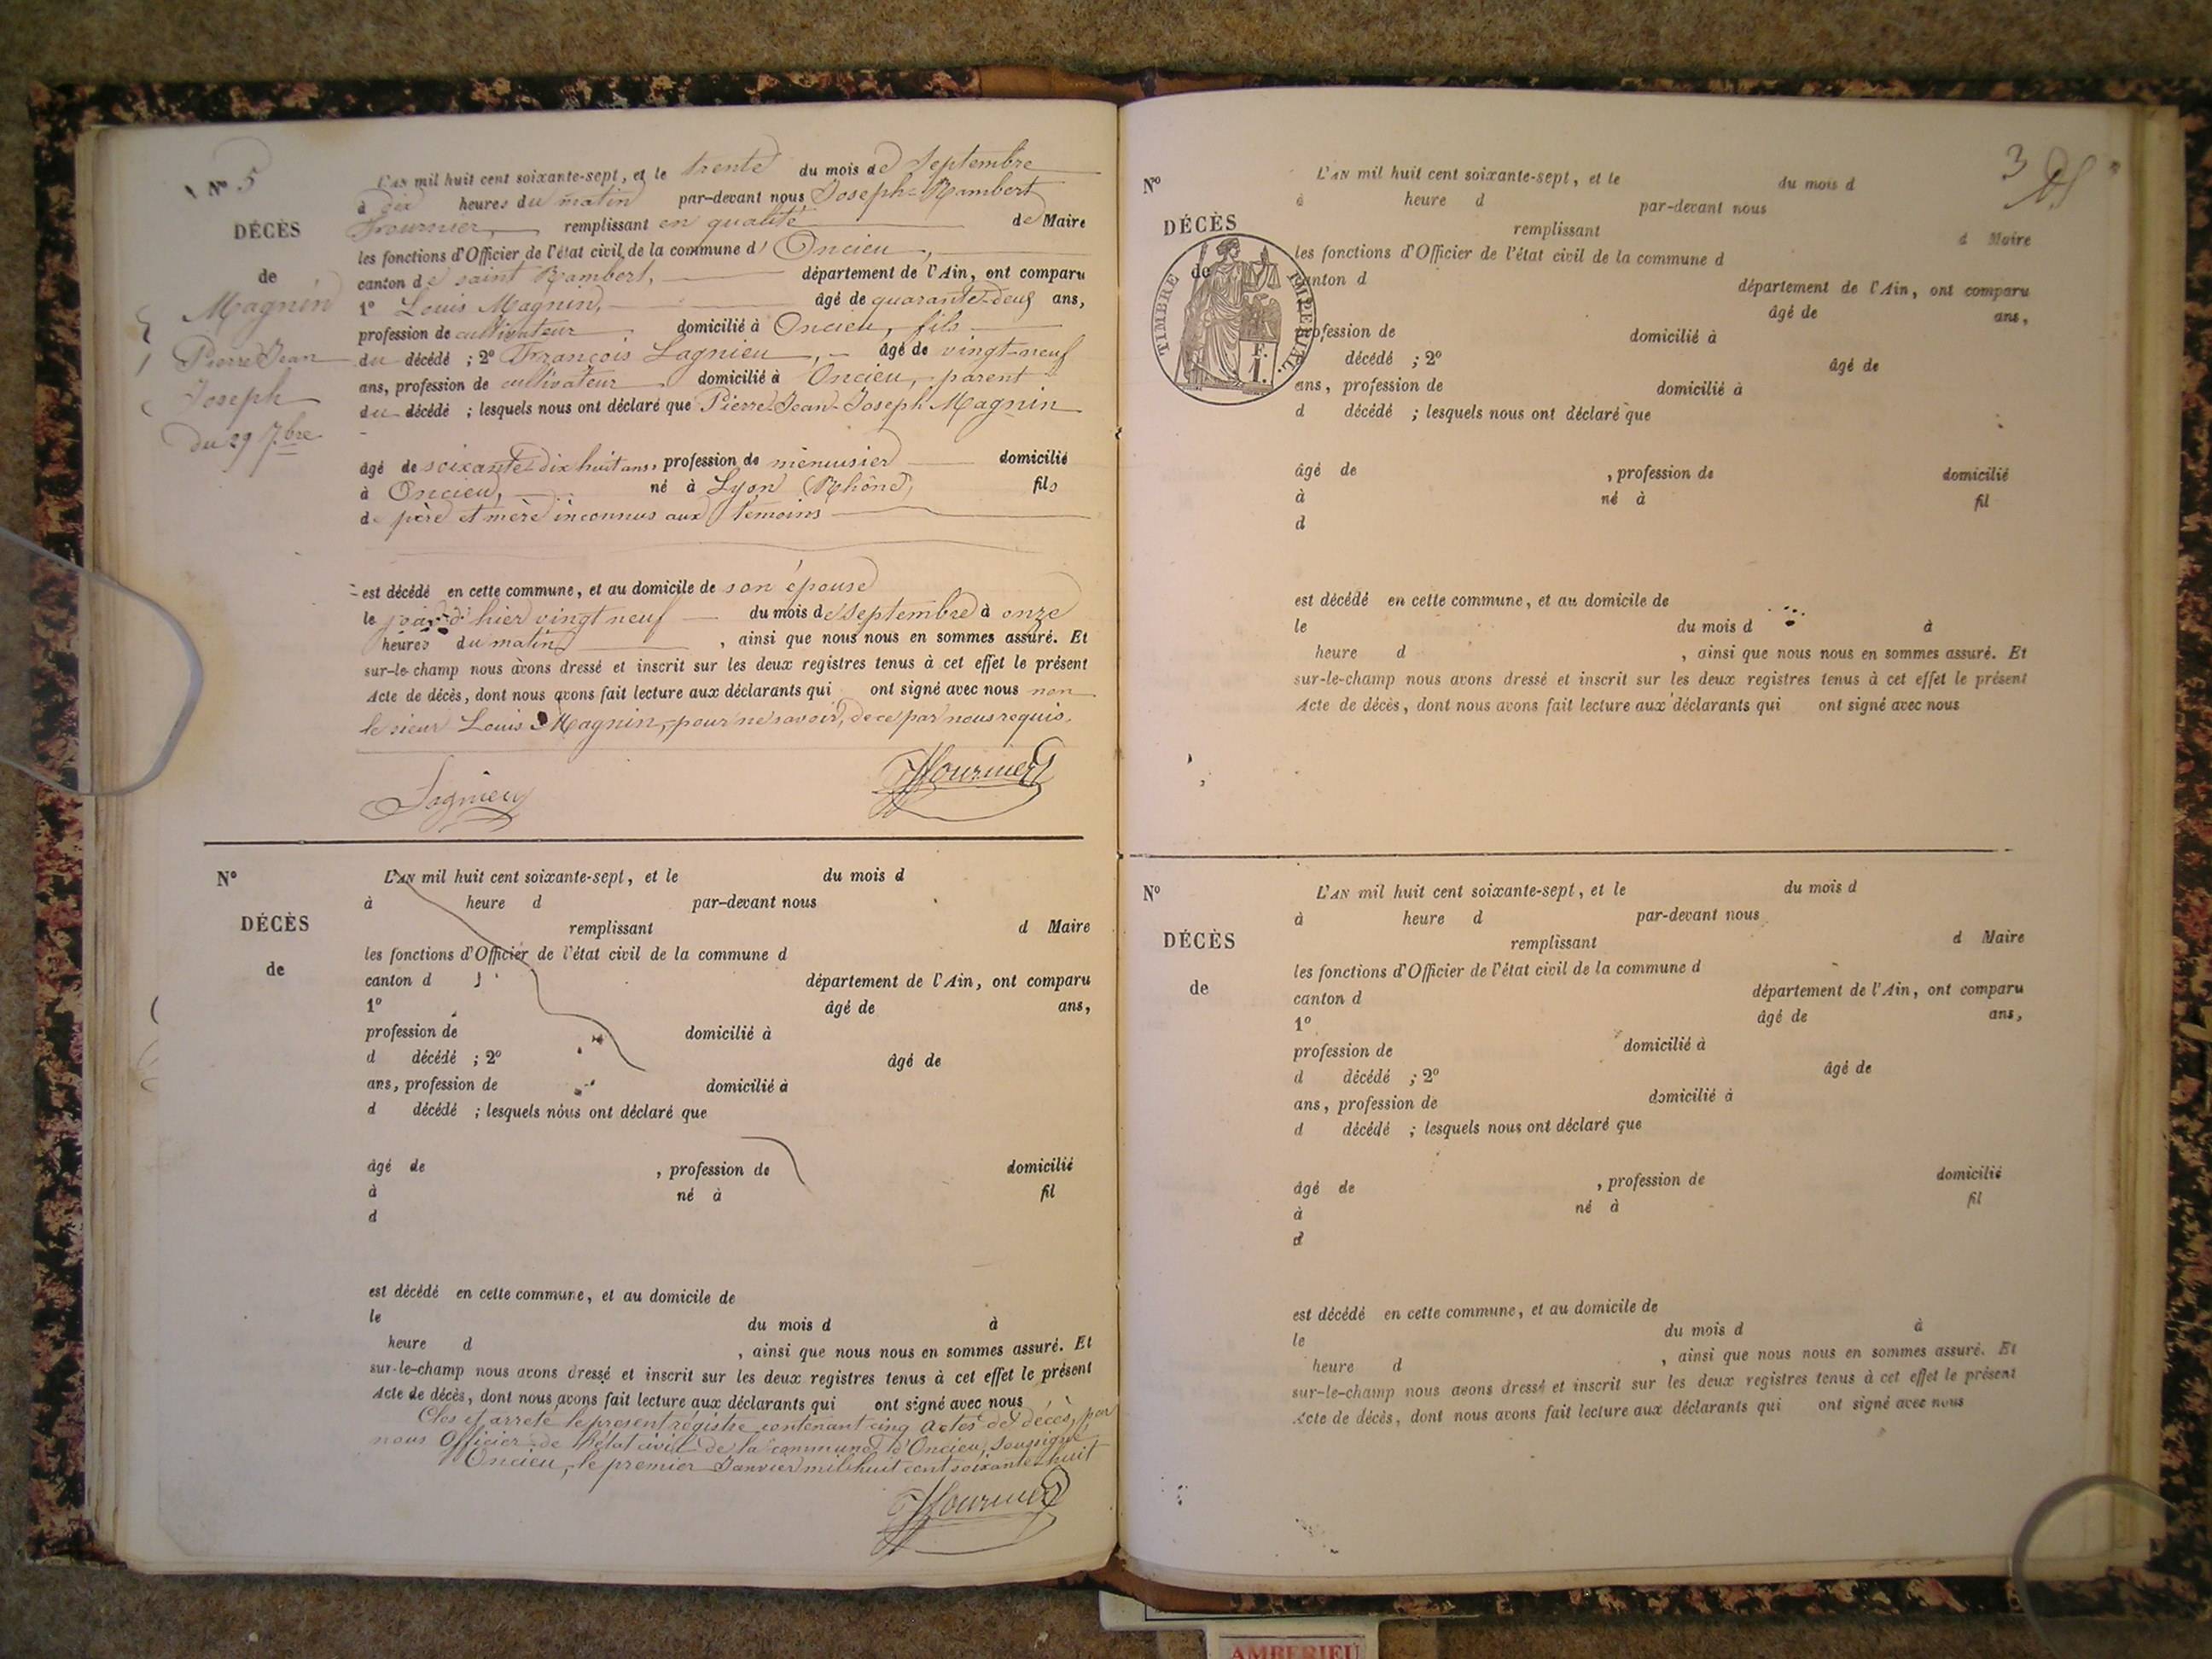 N° 5
DÉCÈS
de
Magnin
Pierre Jean
Joseph
du 29 7bre
L'AN mil huit cent soixante-sept, et le trente du mois de Septembre
à dix heures du matin par-devant nous Joseph-Rambert
Fournier, remplissant en qualité de Maire
les fonctions d'Officier de l'état civil de la commune d' Oncieu,
canton de saint Rambert, département de l'Ain, ont comparu
1° Louis Magnin, âgé de quarante-deux ans,
profession de cultivateur domicilié à Oncieu, fils
du décédé ; 2° François Lagnieu, âgé de vingt-neuf
ans, profession de cultivateur domicilié à Oncieu, parent
du décédé ; lesquels nous ont déclaré que Pierre-Jean-Joseph Magnin
âgé de soixante-dix huit ans, profession de menuisier domicilié
à Oncieu, né à Lyon (Rhône), fils
de père et mère inconnus aux témoins
est décédé en cette commune, et au domicile de son épouse
le jour d'hier vingt neuf du mois de septembre à onze
heures du matin, ainsi que nous nous en sommes assuré. Et
sur-le-champ nous avons dressé et inscrit sur les deux registres tenus à cet effet le présent
Acte de décès, dont nous avons fait lecture aux déclarants qui ont signé avec nous non
le sieur Louis Magnin, pour ne savoir, de ce par nous requis.
Lagnieu Fournier
N°
DÉCÈS
de
L'AN mil huit cent soixante-sept, et le du mois d
à heure d par-devant nous
remplissant d Maire
les fonctions d'Officier de l'état civil de la commune d
canton d département de l'Ain, ont comparu
1° âgé de ans,
profession de domicilié à
d décédé ; 2° âgé de
ans, profession de domicilié à
d décédé ; lesquels nous ont déclaré que
âgé de , profession de domicilié
à né à fil
d
est décédé en cette commune, et au domicile de
le du mois d à
heure d , ainsi que nous nous en sommes assuré. Et
sur-le-champ nous avons dressé et inscrit sur les deux registres tenus à cet effet le présent
Acte de décès, dont nous avons fait lecture aux déclarants qui ont signé avec nous
Clos et arrêté le présent régistre contenant cinq actes de décès, par
nous Officier de l'état civil de la commune d'Oncieu, soussigné
Oncieu, le premier Janvier mil huit cent soixante huit
Fournier
3
N°
DÉCÈS
de
TIMBRE IMPÉRIAL
L'AN mil huit cent soixante-sept, et le du mois d
à heure d par-devant nous
remplissant d Maire
les fonctions d'Officier de l'état civil de la commune d
canton d département de l'Ain, ont comparu
âgé de ans,
profession de domicilié à
décédé ; 2° âgé de
ans, profession de domicilié à
d décédé ; lesquels nous ont déclaré que
âgé de , profession de domicilié
à né à fil
d
est décédé en cette commune, et au domicile de
le du mois d à
heure d , ainsi que nous nous en sommes assuré. Et
sur-le-champ nous avons dressé et inscrit sur les deux registres tenus à cet effet le présent
Acte de décès, dont nous avons fait lecture aux déclarants qui ont signé avec nous
N°
DÉCÈS
de
L'AN mil huit cent soixante-sept, et le du mois d
à heure d par-devant nous
remplissant d Maire
les fonctions d'Officier de l'état civil de la commune d
canton d département de l'Ain, ont comparu
1° âgé de ans,
profession de domicilié à
d décédé ; 2° âgé de
ans, profession de domicilié à
d décédé ; lesquels nous ont déclaré que
âgé de , profession de domicilié
à né à fil
d
est décédé en cette commune, et au domicile de
le du mois d à
heure d , ainsi que nous nous en sommes assuré. Et
sur-le-champ nous avons dressé et inscrit sur les deux registres tenus à cet effet le présent
Acte de décès, dont nous avons fait lecture aux déclarants qui ont signé avec nous
AMBERIEU